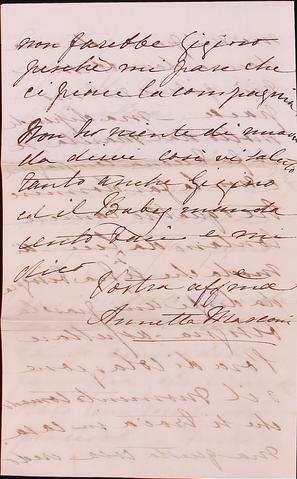 non farebbe Gigino
perchè mi pare che
ci piace la compagnia
Non ho niente di nuovo
da dirvi così vi saluto
tanto anche Gigino
ed il Baby manda
cento baci e mi
dico
Vostra affma
Annetta Marconi